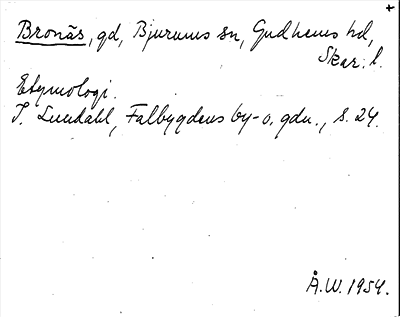 +
Bronäs, gd, Bjurums sn, Gudhems hd,
Skar. l.
Etymologi.
I. Lundahl, Falbygdens by- o. gdn., s. 24.
Å.W. 1954.